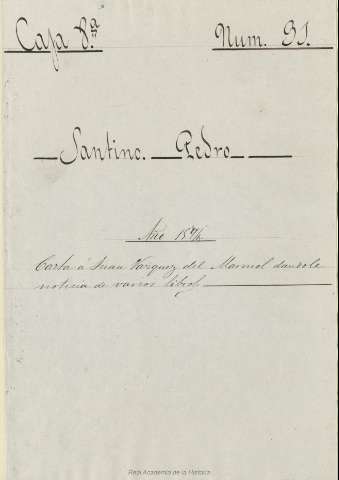 Caja 8.ª Num. 31.
Santino. Pedro
Año
Carta á Juan Vazquez del Marmol dandole
noticia de varios libros
Real Academia de la Historia